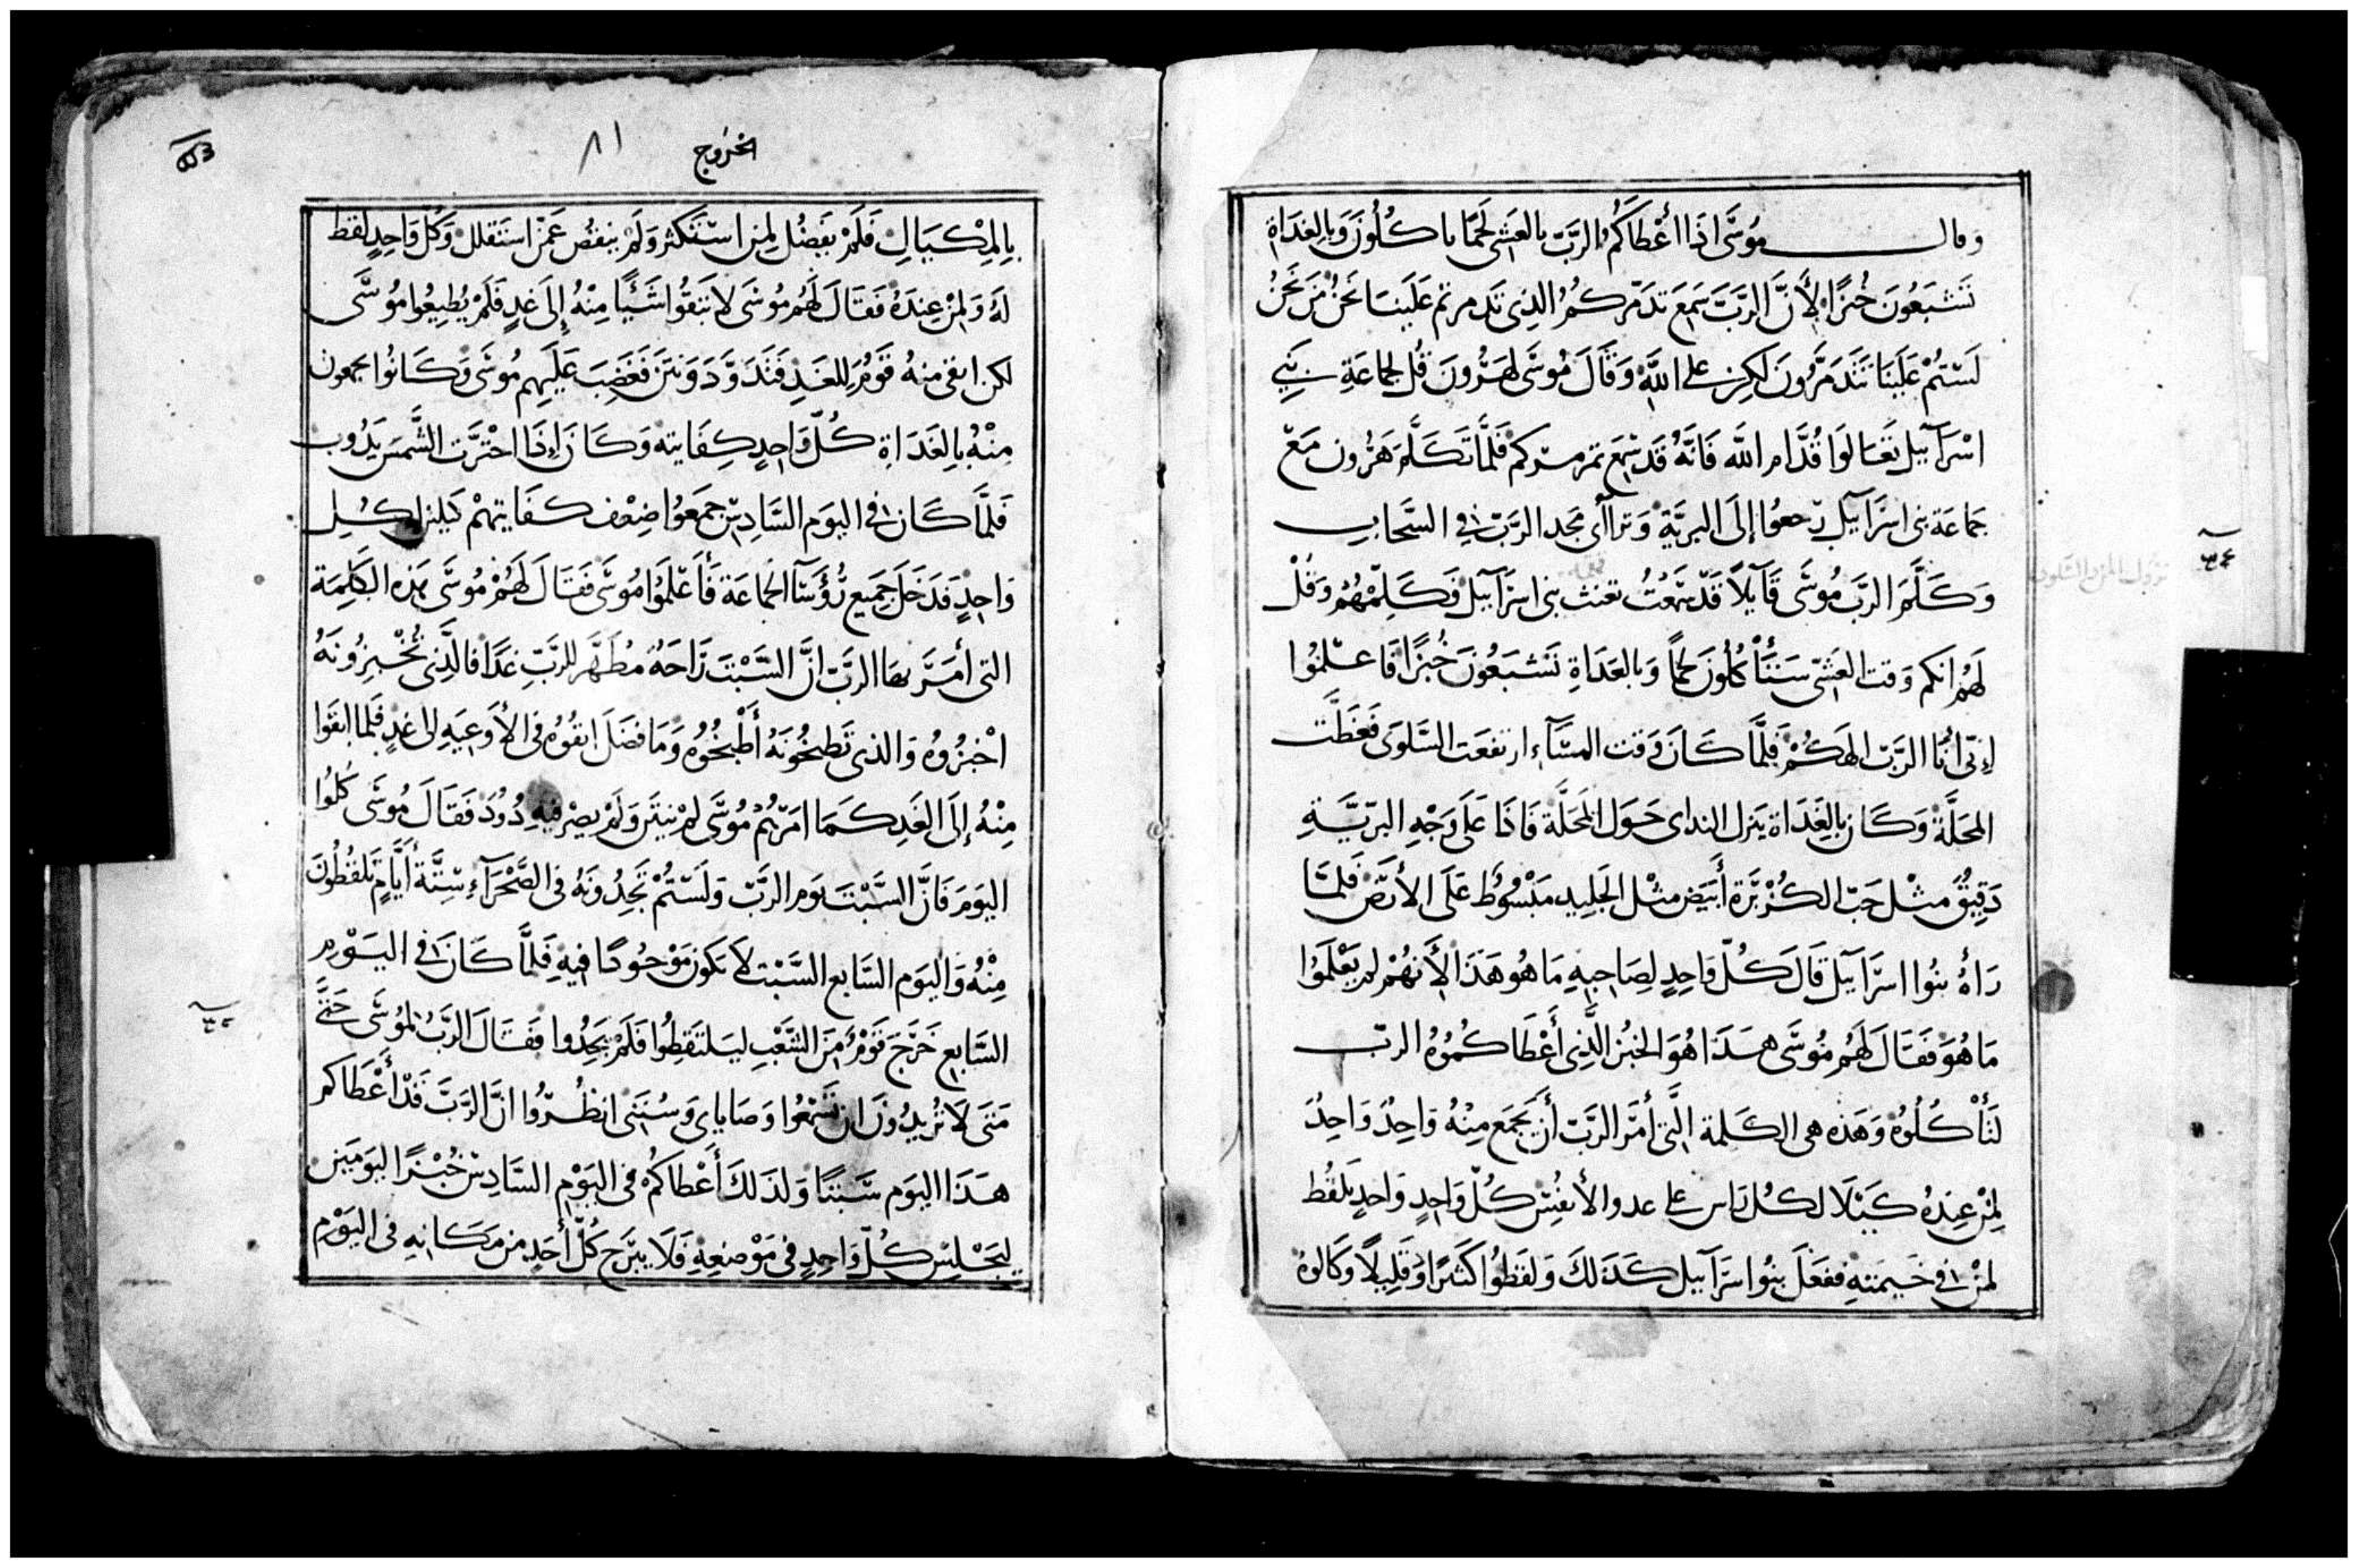 وقال موسى اذا أعطاكم الرب بالعشى لحما ياكلون وبالغداة
تشبعون خبزا لأن الرب سمع تدمركم الذى تدمرتم علينا نحن من نحن
لستم علينا تتدمرون لكن على الله وقال موسى لهرون قل لجماعة بنى
اسرآييل تعالوا قدام الله فانه قد سمع تمرمركم فلما تكلم هرون مع
جماعة بنى اسرآييل رجعوا إلى البرية وتراأى مجد الرب فى السحاب
وكلم الرب موسى قآيلا قد سمعت تعنث بنى اسرآييل فكلمهم وقل
لهم انكم وقت العشى ستأكلون لحما وبالغداة تشبعون خبزا فاعلموا
إنى أنا الرب الهكم فلما كان وقت المسآء ارتفعت السلوى فغطت
المحلة وكان بالغداة ينزل النداى حول المحلة فاذا على وجه البرية
دقيق مثل حب الكزبرة أبيض مثل الجليد مبسوط على الأرض فلما
رأه بنوا اسرآييل قال كل واحد لصاحبه ما هو هذا لأنهم لم يعلموا
ما هو فقال لهم موسى هذا هو الخبز الذى أعطاكموه الرب
لتأكلوه وهذه هى الكلمة التى أمر الرب أن يجمع منه واحد واحد
لمن عنده كيلا لكل راس على عدد الأنفس كل واحد واحد يلقط
لمن فى خيمته ففعل بنوا اسرآييل كذلك ولقطوا كثيرا وقليلا وكالوه
نزول المن والسلوى
الخروج
٨١
بالمكيال فلم يفضل لمن استكثر ولم ينقص عمن استقلل وكل واحد لقط
له ولمن عنده فقال لهم موسى لا تبقوا شئيا منه إلى غد فلم يطيعوا موسى
لكن ابقى منه قوم للغد فتدود ونتن فغضب عليهم موسى وكانوا يجمعون
منه بالغداة كل واحد كفايته وكان إذا احترت الشمس يدوب
فلما كان فى اليوم السادس جمعوا ضعف كفايتهم كيلين لكل
واحد فدخل جميع رؤسآ الجماعة فأعلموا موسى فقال لهم موسى هذه الكلمة
التى أمر بها الرب ان السبت راحه مطهر للرب غدا فالذى تخبزونه
اخبزوه والذى تطبخونه أطبخوه وما فضل ابقوه فى الأوعيه الى غد فلما ابقوا
منه إلى الغد كما امرهم موسى لم ينتن ولم يصر فيه دود فقال موسى كلوا
اليوم فان السبت يوم الرب ولستم تجدونه فى الصحرآء ستة أيام تلقطون
منه واليوم السابع السبت لا يكون موجودا فيه فلما كان فى اليوم
السابع خرج قوم من الشعب ليلتقطوا فلم يجدوا فقال الرب لموسى حتى
متى لا تريدون ان تسمعوا وصاياى وسنتى انظروا ان الرب قد أعطاكم
هذا اليوم سبتا ولذلك أعطاكم فى اليوم السادس خبزا ليومين
ليجلس كل واحد فى موضعه فلا يبرح كل أحد من مكانه فى اليوم